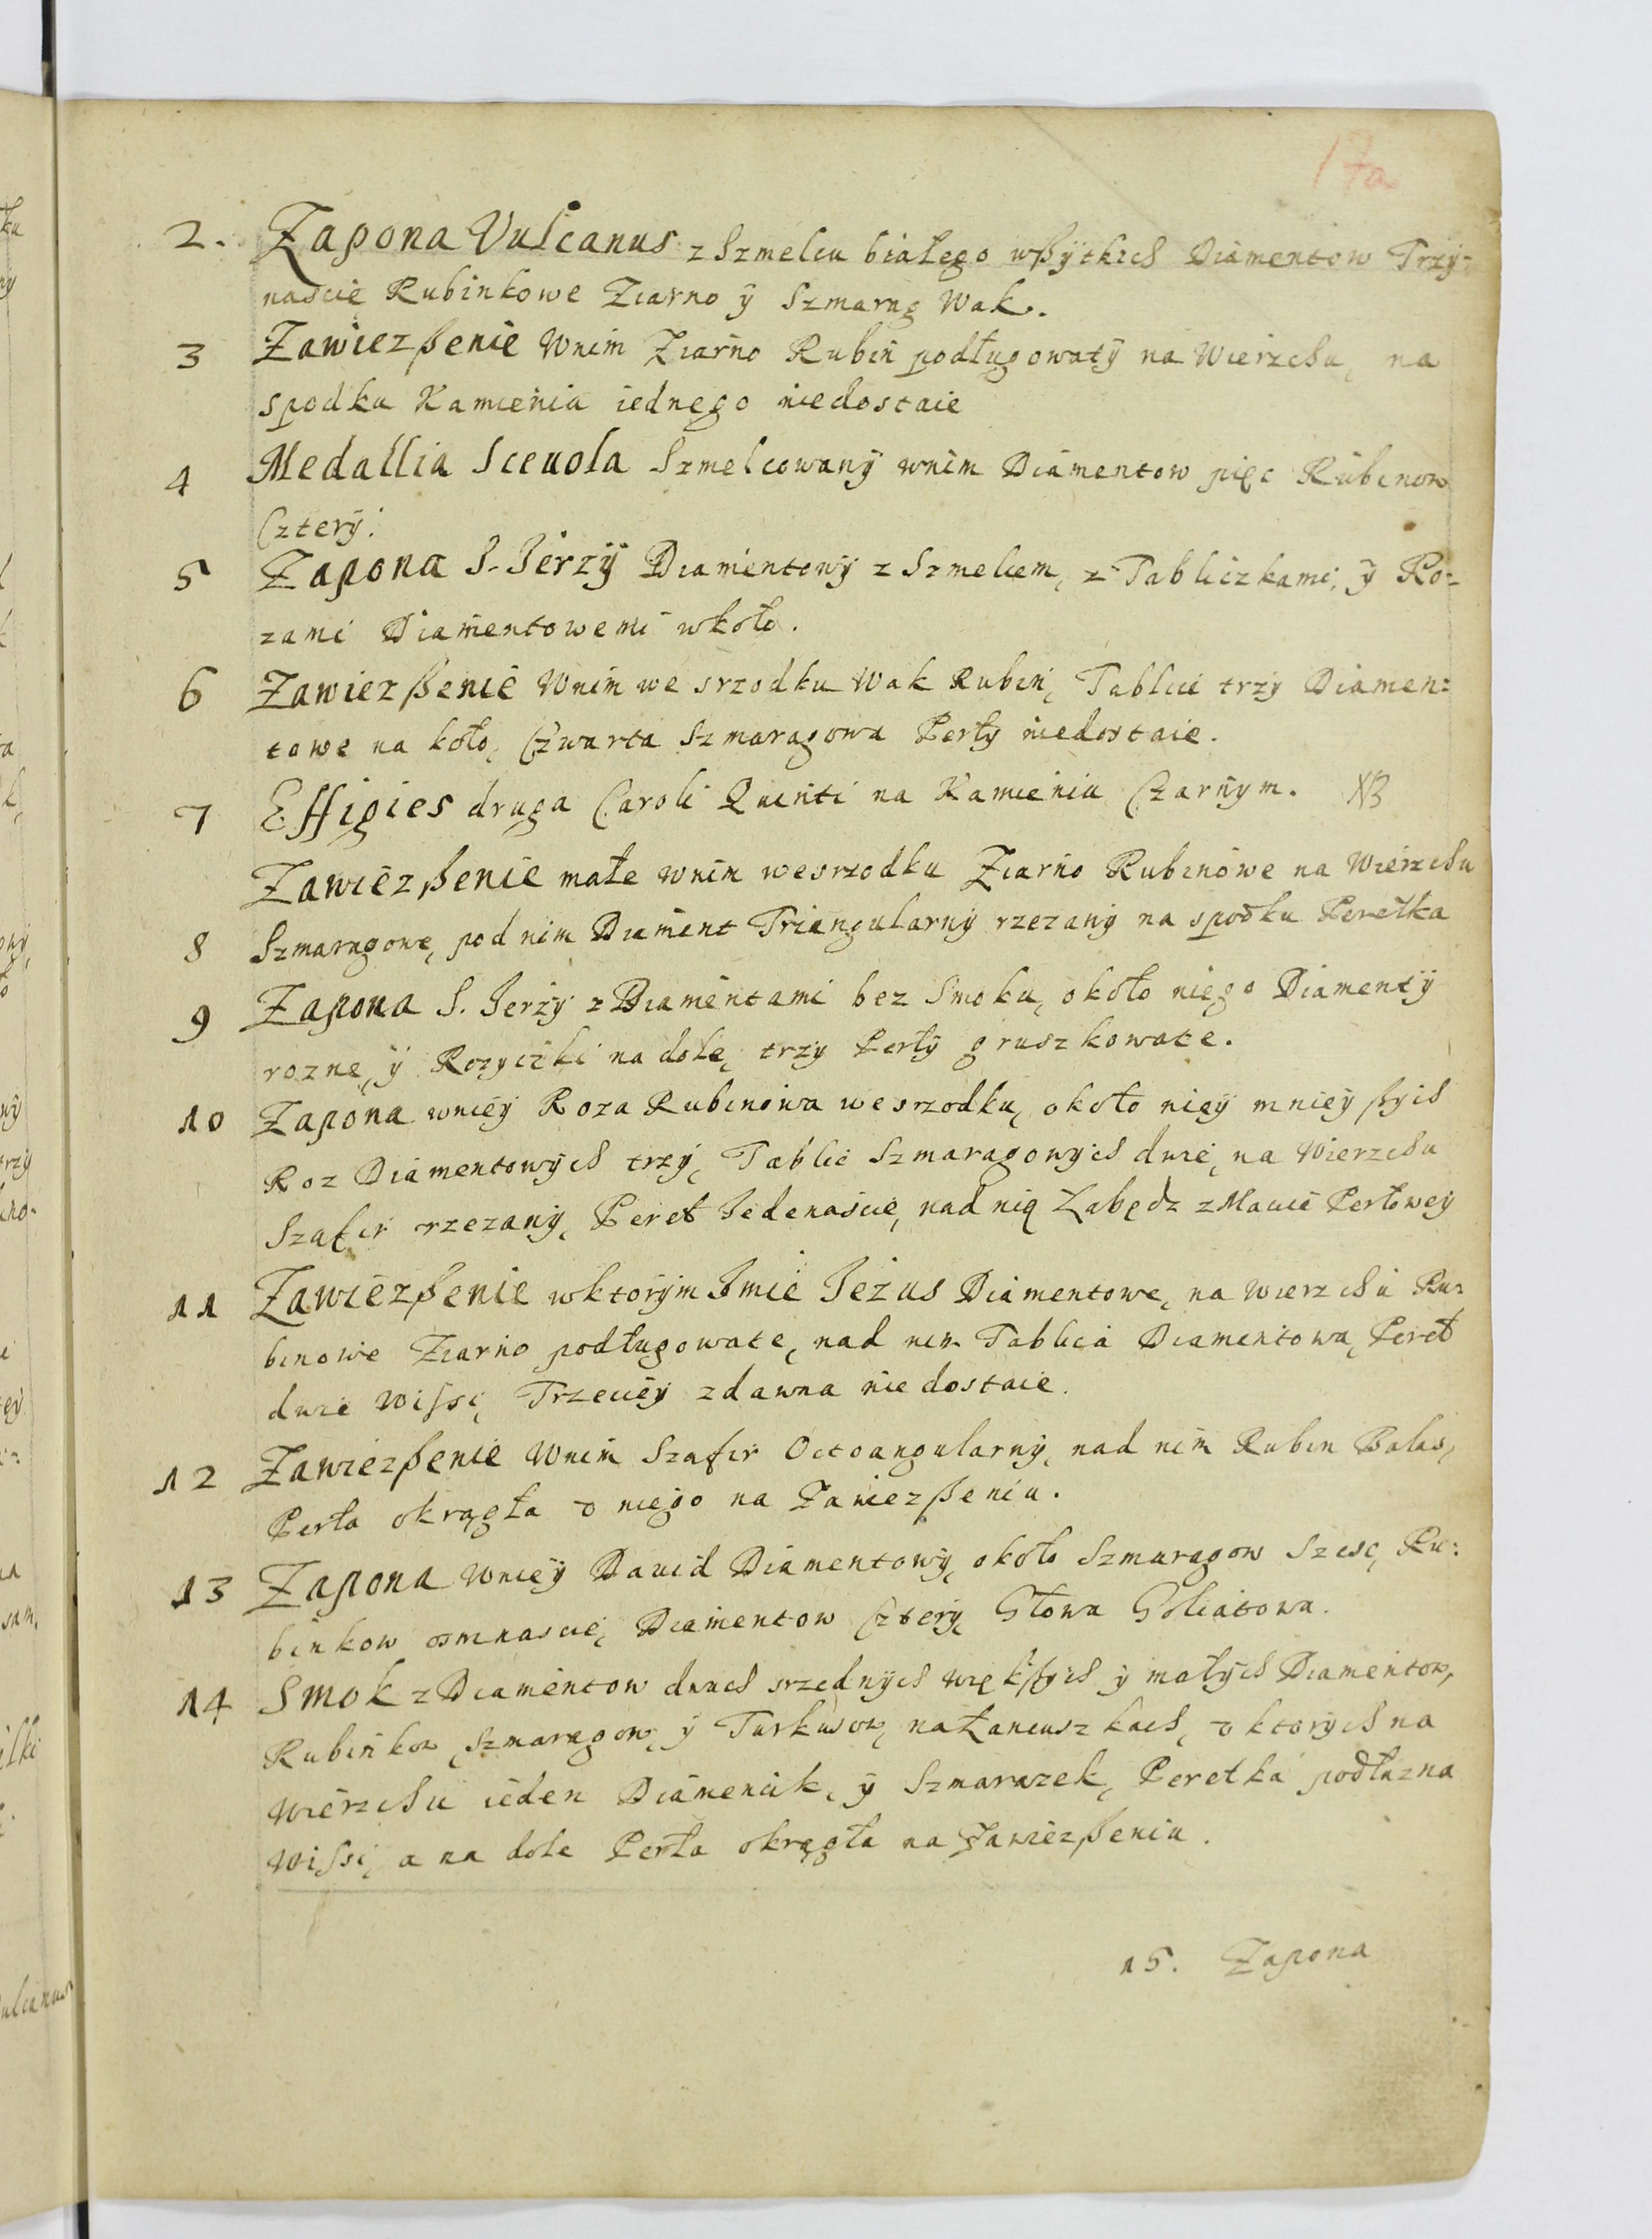 17a
2. Zapona Vulcanus z Szmelcu białego wßÿtkich Diamentow Trzÿ-
nascie Rubinkowe Ziarno ÿ Szmarag Wak.
3 Zawiezßenie Wnim Ziarno Rubin podługowatÿ na Wierzchu, na
spodku Kamienia iednego niedostaie
4 Medallia Sceuola Szmelcowanÿ wnim Diamentow pięc Rubinow
Czterÿ.
5 Zapona S. Jerzÿ Diamentowÿ z Szmelcem, z Tabliczkami, ÿ Ro:
zami Diamentowemi wkoło.
6 Zawiezßenie Wnim we srzodku Wak Rubin, Tablici trzÿ Diamen:
towe na koło, Czwarta Szmaragowa Perłÿ niedostaie.
7 Effigies druga Caroli Quinti na Kamieniu Czarnÿm. NB
Zawiezßenie małe wnim wesrzodku Ziarno Rubinowe na Wierzchu
8 Szmaragowe, pod nim Diament Triangularnÿ rzezanÿ na spodku Perełka
9 Zapona S. Jerzÿ z Diamentami bez Smoku, około niego Diamentÿ
rozne, ÿ Rozyczki na dole, trzÿ Perłÿ gruszkowate.
10 Zapona wnieÿ Roza Rubinowa wesrzodku, około nieÿ mnieÿßÿch
Roz Diamentowÿch trzÿ, Tablic Szmaragowÿch dwie, na Wierzchu
Szafir rzezanÿ, Pereł Jedenascie, nad nią Łabędz z Macie Perłoweÿ
11 Zawiezßenie wktorÿm Jmie Jezus Diamentowe, na Wierzchu Ru:
binowe Ziarno podługowate, nad nim Tablica Diamentowa, Pereł
dwie Wissi, Trzecieÿ zdawna niedostaie.
12 Zawiezßenie Wnim Szafir Octoangularnÿ, nad nim Rubin Balas,
Perła okrągła v niego na Zawiezßeniu.
13 Zapona Wnieÿ Dauid Diamentowÿ, około Szmaragow Szesc, Ru:
binkow osmnascie, Diamentow Czterÿ, Głowa Goliatowa.
14 Smok z Diamentow dwuch srzednÿch więkßÿch ÿ małÿch Diamentow,
Rubinkow, Szmaragow, ÿ Turkusow, na Łancuszkach, v ktorÿch na
Wierzchu ieden Diamencik, ÿ Szmarazek, Perełka podłuzna
Wissi, a na dole Perła okrągła na Zawiezßeniu.
15. Zapona